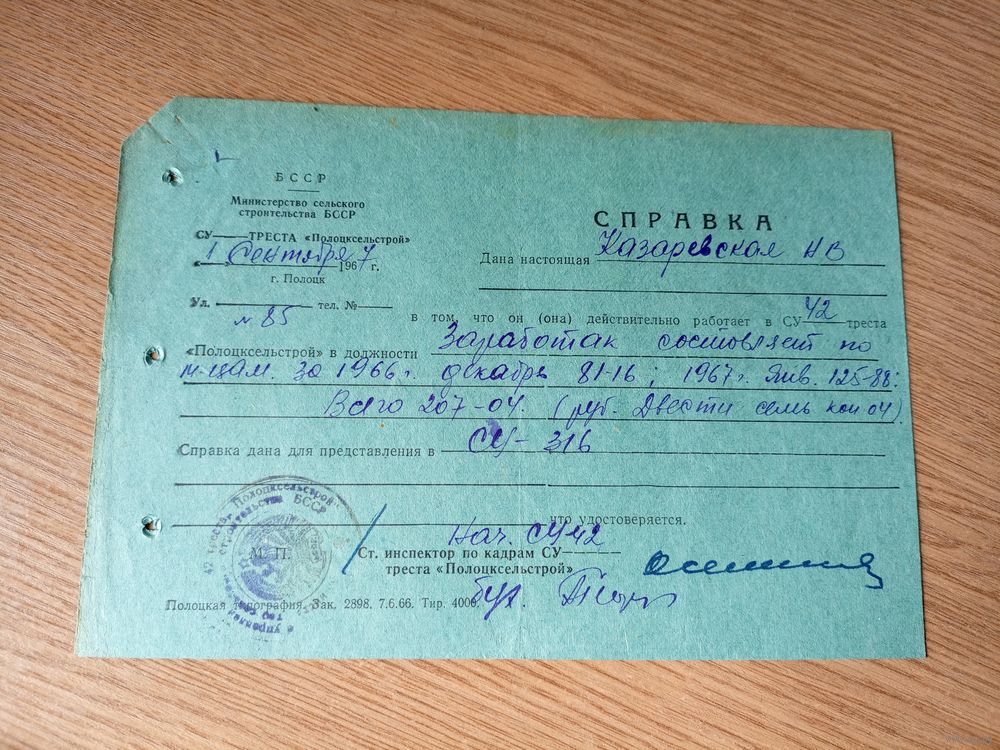 БССР
Министерство сельского
строительства БССР
СУ ТРЕСТА «Полоцксельстрой»
1 Сентября 1967 г.
г. Полоцк
Ул. тел. №
№ 85
СПРАВКА
Дана настоящая Казаревская НВ
в том, что он (она) действительно работает в СУ 42 треста
«Полоцксельстрой» в должности Заработак состовляет по
м-цам. за 1966 г. декабрь 81-16; 1967 г. Янв. 125-88:
Всего 207-04. (руб. Двести семь коп 04)
Справка дана для представления в СУ-316
что удостоверяется.
Нач. СУ42
М. П. Ст. инспектор по кадрам СУ
треста «Полоцксельстрой»
бух.
Полоцкая типография. Зак. 2898. 7.6.66. Тир. 4000.